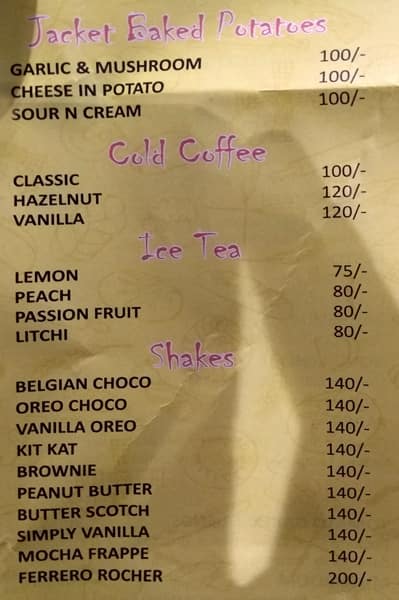 Jacket Baked Potatoes
GARLIC & MUSHROOM 100/-
CHEESE IN POTATO 100/-
SOUR N CREAM 100/-
Cold Coffee
CLASSIC 100/-
HAZELNUT 120/-
VANILLA 120/-
Ice Tea
LEMON 75/-
PEACH 80/-
PASSION FRUIT 80/-
LITCHI 80/-
Shakes
BELGIAN CHOCO 140/-
OREO CHOCO 140/-
VANILLA OREO 140/-
KIT KAT 140/-
BROWNIE 140/-
PEANUT BUTTER 140/-
BUTTER SCOTCH 140/-
SIMPLY VANILLA 140/-
MOCHA FRAPPE 140/-
FERRERO ROCHER 200/-